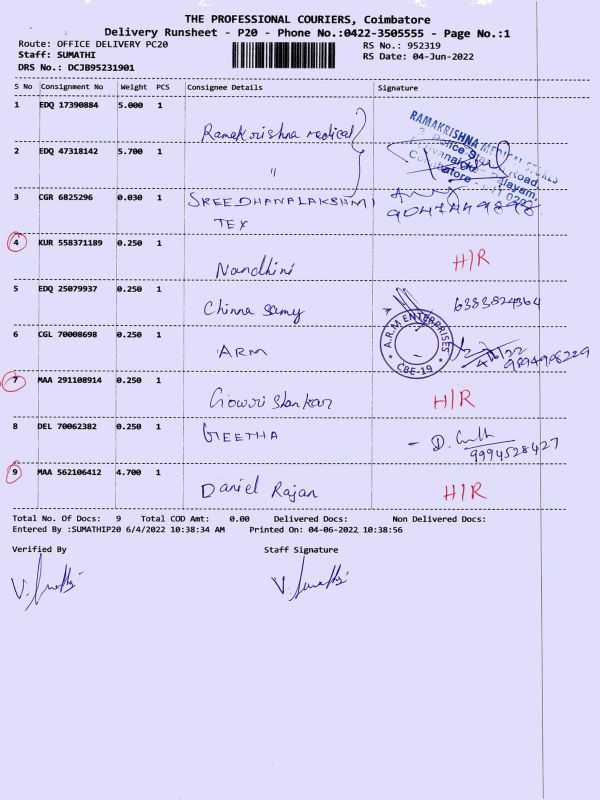 THE PROFESSIONAL COURIERS, Coimbatore
Delivery Runsheet - P20 - Phone No.:0422-3505555 - Page No.:1
Route: OFFICE DELIVERY PC20 RS No.: 952319
Staff: SUMATHI RS Date: 04-Jun-2022
DRS No.: DCJB95231901
S No Consignment No Weight PCS Consignee Details Signature
1 EDQ 17390884 5.000 1 Ramakrishna medical
RAMAKRISHNA MEDICAL STORES
2 EDQ 47318142 5.700 1 "
Road,
Coimbatore
3 CGR 6825296 0.030 1 SREEDHANALAKSHMI
TEX
4 KUR 558371189 0.250 1 Nandhini H/R
5 EDQ 25079937 0.250 1 Chinna samy 6383824364
6 CGL 70008698 0.250 1 ARM
A.R.M ENTERPRISES
CBE-19
9894998229
7 MAA 291108914 0.250 1 Gowri Shankar H/R
8 DEL 70062382 0.250 1 GEETHA
9994528427
9 MAA 562106412 4.700 1 Daniel Rajan H/R
Total No. Of Docs: 9 Total COD Amt: 0.00 Delivered Docs: Non Delivered Docs:
Entered By :SUMATHIP20 6/4/2022 10:38:34 AM Printed On: 04-06-2022 10:38:56
Verified By Staff Signature
V. Sumathi V. Sumathi